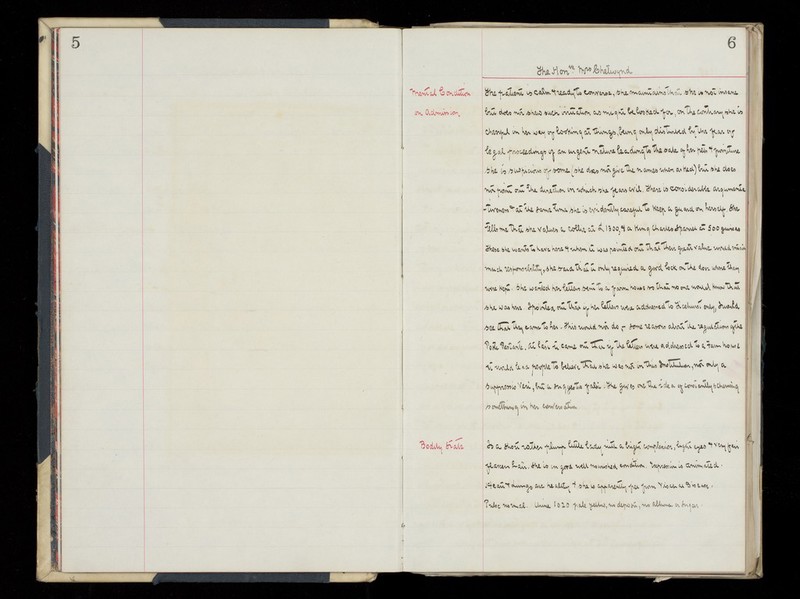 5
6
The Honble Mrs Chetwynd
Mental Condition
on admission.
The patient is calm & ready to converse, she maintains that she is not insane
but does not shew such irritation as might be looked for, on the contrary she is
cheerful in her way of looking at things, being only disturbed by the fear of
legal proceedings of an urgent nature leading to the sale of her pets & furniture
She is suspicious of some (she does not give the names when asked) but she does
not point out the direction in which she fears evil. There is considerable argumenta
-tiveness & at the same time she is evidently careful to keep a guard on herself. She
tells me that she values a collie at £1300, & a King Charles Spaniel at 500 guineas
these she wants to have here & when it was pointed out that their great value would entail
much responsibility, she said that it only required a good lock on the door where they
were kept. She wanted her letters sent to a farm house so that no one would know that
she was here. I pointed out that if her letters were addressed to Ticehurst only, I would
see that they came to her. This would not do, for some reasons about the regulations of the
Post Office, at last it came out that if the letters were addressed to a Farm house
it would lead people to believe that she was not in this Institution, not only a
suppressio veri, but a suggestio falsi. She gives one the idea of constantly scheming
something in her conversation.
Bodily State
Is a short rather plump little lady with a bright complexion, light eyes & very fair
flaxen hair. She is in good well nourished condition. Expression is animated.
Heart & lungs are healthy & she is apparently free from Visceral Disease.
Pulse normal. Urine 1020 pale yellow, no deposit, no albumen or sugar.